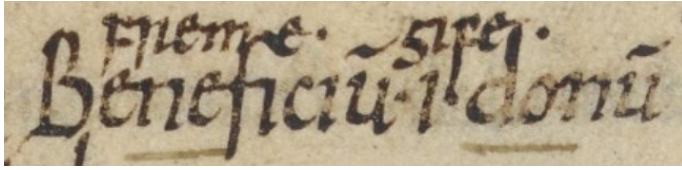 freme· gife·
Beneficiū·i·donū